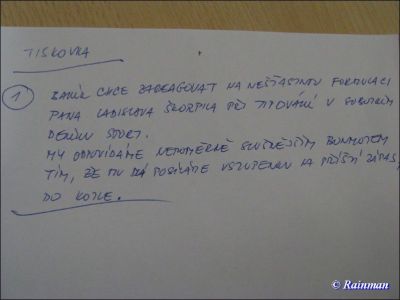 TISKOVKA
1 BANÍK CHCE ZAREAGOVAT NA NEŠŤASTNOU FORMULACI
PANA LADISLAVA ŠKORPILA PŘI TIPOVÁNÍ V SOBOTNÍM
DENÍKU SPORT.
MY ODPOVÍDÁME NEPOMĚRNĚ SLUŠNĚJŠÍM BONMOTEM
TÍM, ŽE MU POSÍLÁME VSTUPENKU NA PŘÍŠTÍ ZÁPAS,
DO KOTLE.
© Rainman